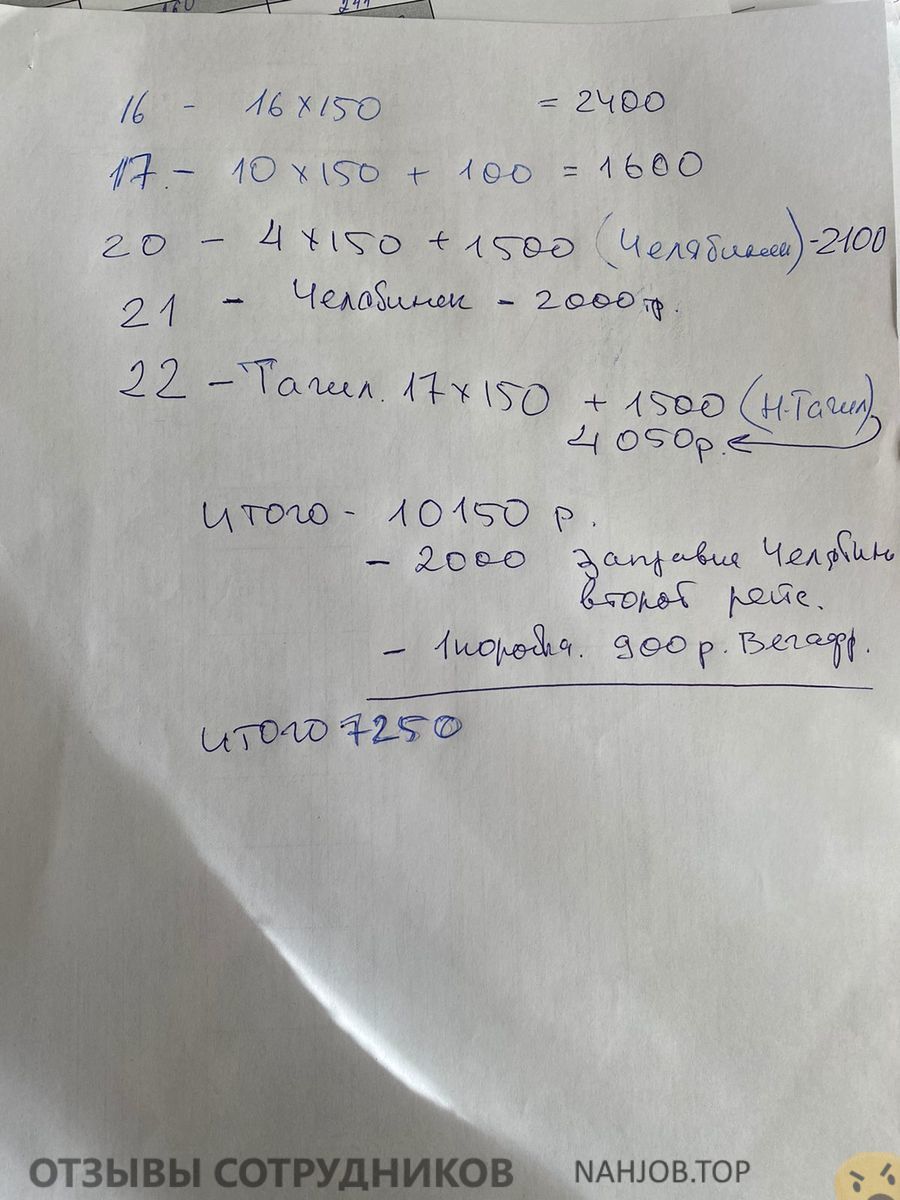 160 244
16 - 16×150 = 2400
17 - 10×150 + 100 = 1600
20 - 4×150 + 1500 (Челябинск) - 2100
21 - Челябинск - 2000 тр.
22 - Тагил. 17×150 + 1500 (Н.Тагил)
4050р.
итого - 10150 р.
- 2000 заправка Челябинс
второй рейс.
- 1 коробка. 900 р. Вегафр.
итого 7250
ОТЗЫВЫ СОТРУДНИКОВ NAHJOB.TOP